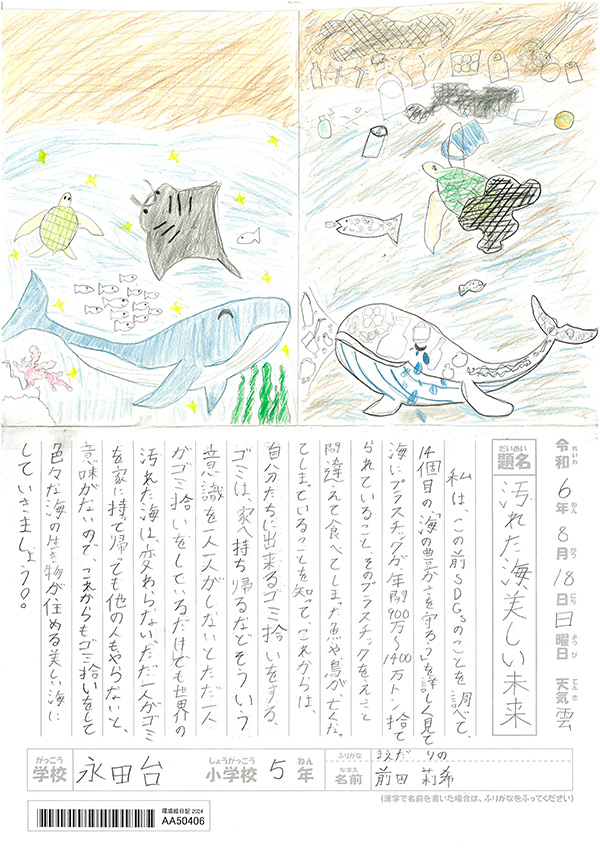 令和6年8月18日日曜日 天気 雲
れいわ ねん がつ にち ようび てんき
だいめい
題名 汚れた海美しい未来
私は、この前SDGsのことを調べて、
14個目の、「海の豊かさを守ろう」を詳しく見て
海にプラスチックが、年間900万〜1400万トン捨て
られていること、そのプラスチックをえさと
間違えて食べてしまった魚や鳥が亡くなっ
てしまっていることを知って、これからは、
自分たちに出来るゴミ拾いをする、
ゴミは、家へ持ち帰るなどそういう
意識を一人一人がしないとただ一人
がゴミ拾いをしているだけでも世界の
汚れた海は、変わらない、ただ一人がゴミ
を家に持て帰っても他の人もやらないと、
意味がないので、これからもゴミ拾いをして
色々な海の生き物が住める美しい海に
していきましょう。
がっこう しょうがっこう ねん
学校 永田台 小学校 5年
ふりがな まえだ りの
なまえ
名前 前田 莉希
(漢字で名前を書いた場合は、ふりがなをふってください)
環境絵日記 2024
AA50406